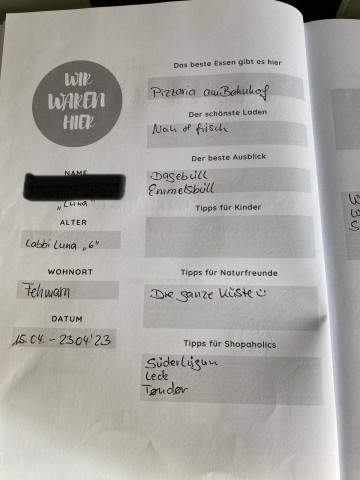 WIR
WAREN
HIER
NAME
"Luna
ALTER
Labbi Luna "6"
WOHNORT
Fehmarn
DATUM
15.04. - 23.04.'23
Das beste Essen gibt es hier
Pizzaria am Bahnhof
Der schönste Laden
Nah & frisch
Der beste Ausblick
Dagebüll
Emmelsbüll
Tipps für Kinder
Tipps für Naturfreunde
Die ganze Küste
Tipps für Shopaholics
Süderlügum
Leck
Tønder